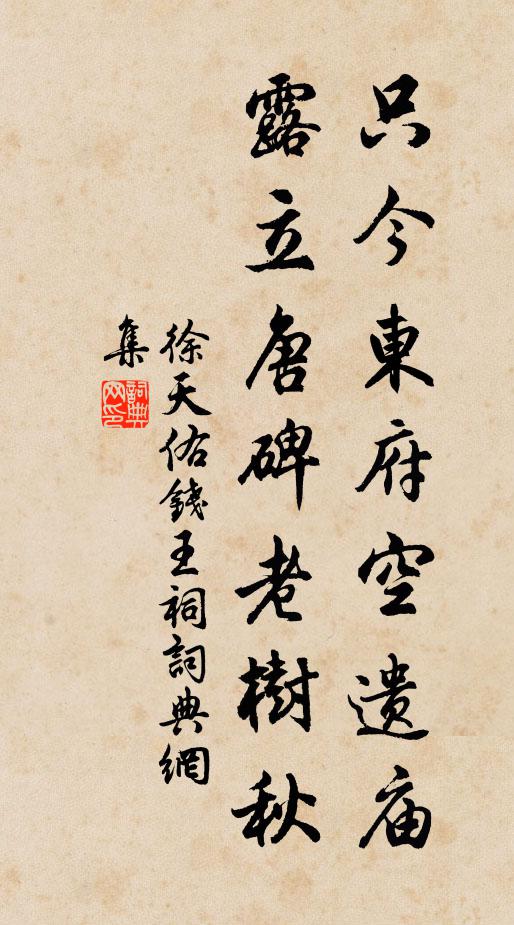 只今東府空遺庙
露立唐碑老樹秋
徐天佑錢王祠詞典網
集
詞典网印